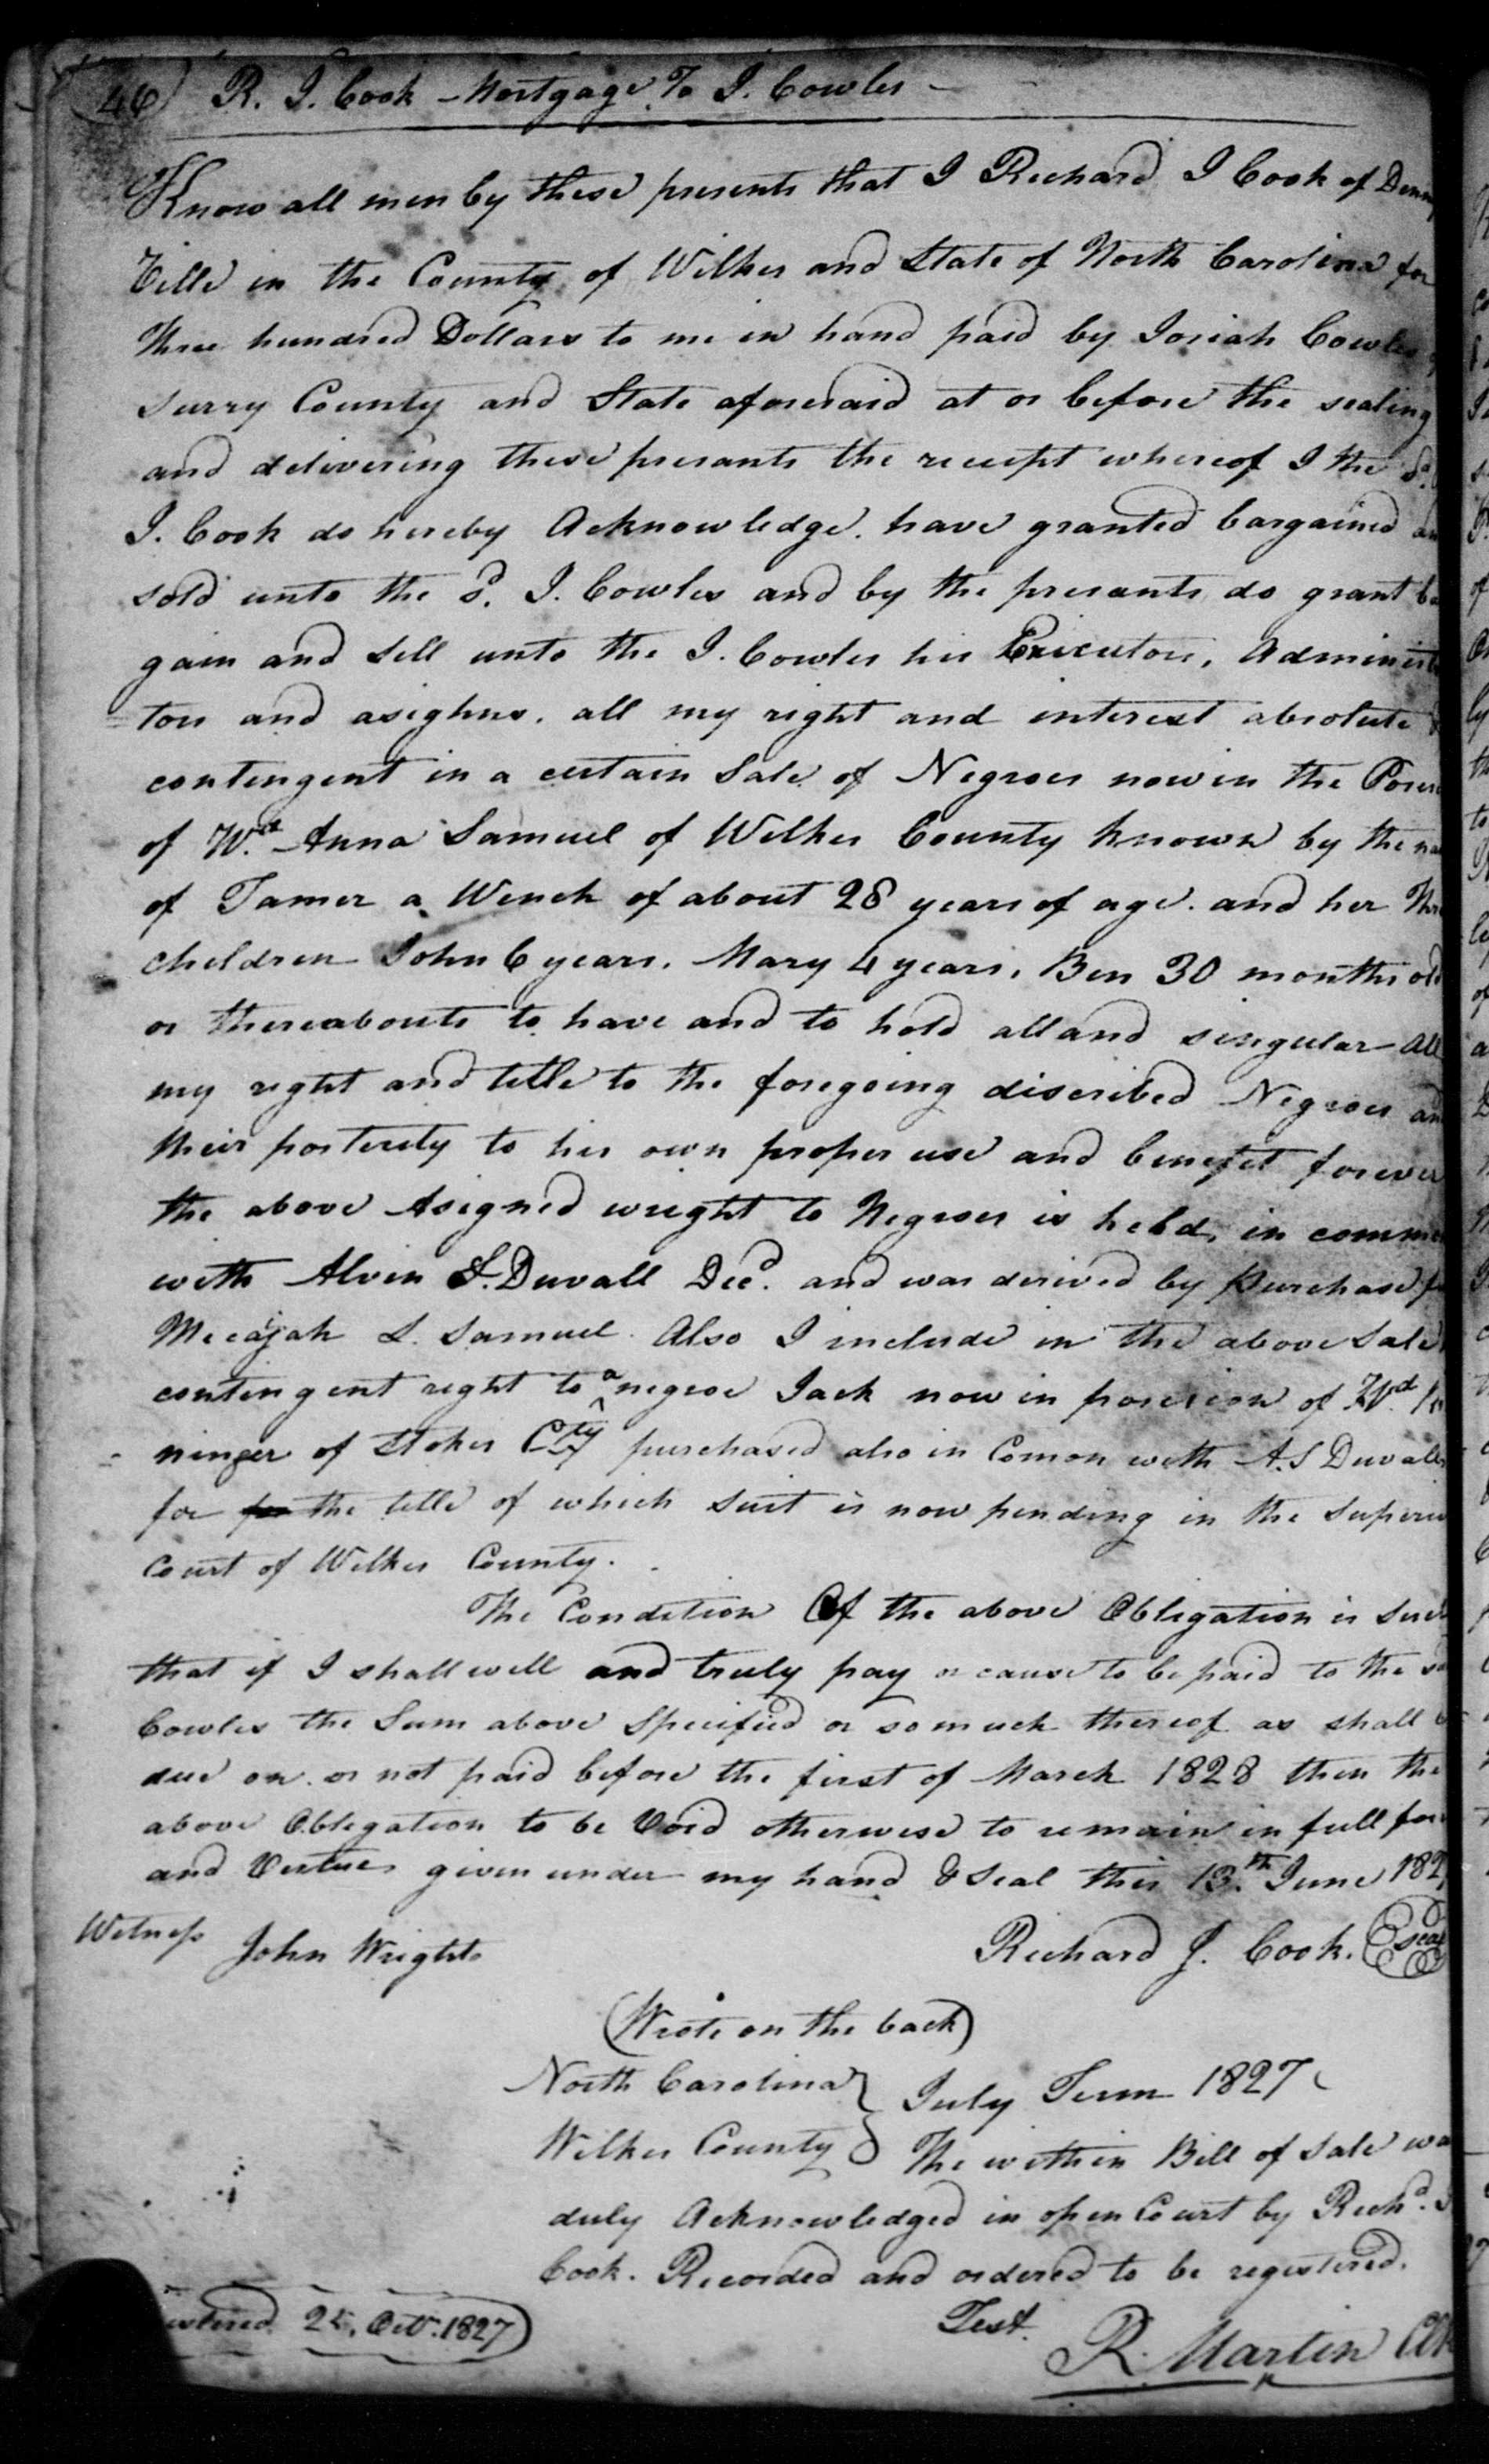 46) R. J. Cook Mortgage To J. Cowles
Know all men by these presents that I Richard J Cook of
Ville in the County of Wilkes and State of North Carolina for
three hundred Dollars to me in hand paid by Josiah Cowles
Surry County and State aforesaid at or before the sealing
and delivering these presants the receipt whereof I the Sd.
J. Cook do hereby Acknowledge. have granted bargained
sold unto the Sd. J. Cowles and by the presants do grant
gain and sell unto the J. Cowles his Executors, Administ
=tors and asighns. all my right and interest absolute
contingent in a certain Sale of Negroes now in the
of Wd. Anna Samuel of Wilkes County known by the
of Tamer a Wench of about 28 years of age. and her
children John 6 years. Mary 4 years. Ben 30 months old
or thereabouts to have and to hold all and singular All
my right and title to the foregoing discribed Negroes
their posterity to his own proper use and benefit forever
the above Asigned wright to Negroes is held, in
with Alvin S. Duvall Decd. and was derived by Purchase
Mecajah L. Samuel. Also I include in the above Sale
contingent right to a negroe Jack now in posession of Wd.
ninger of Stokes Cty purchased also in Comon with A. S Duvall
for for the title of which Suit is now pending in the
Court of Wilkes County.
The Condition Of the above Obligation is Such
that if I shall well and truly pay or cause to be paid to the
Cowles the Sum above Specified or so much thereof as shall
due on or not paid before the first of March 1828 then the
above Obligation to be Void otherwise to remain in full
and Vertue given under my hand & Seal this 13th. June
Witness John Wright
Richard J. Cook. Seal
(Wrote on the back)
North Carolina } July Term 1827
Wilkes County } The within Bill of Sale
duly Acknowledged in open Court by Richd.
Cook. Recorded and ordered to be registered.
Test.
R. Martin Clk
Octr. 1827)